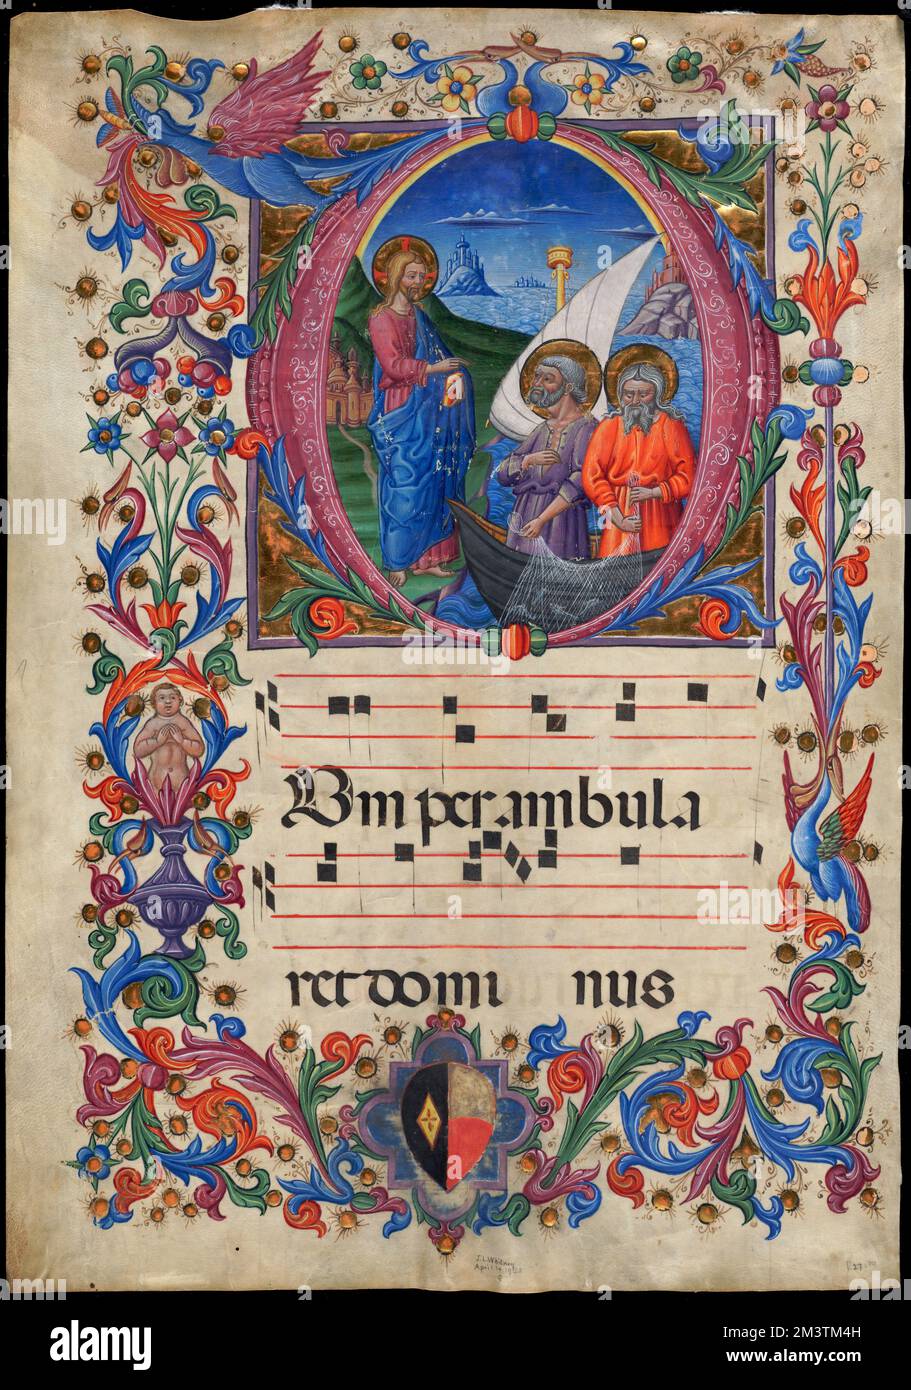 D
Um perambula
ret domi nus
J.L.Whitney
alamy
Image ID: 2M3TM4H
www.alamy.com